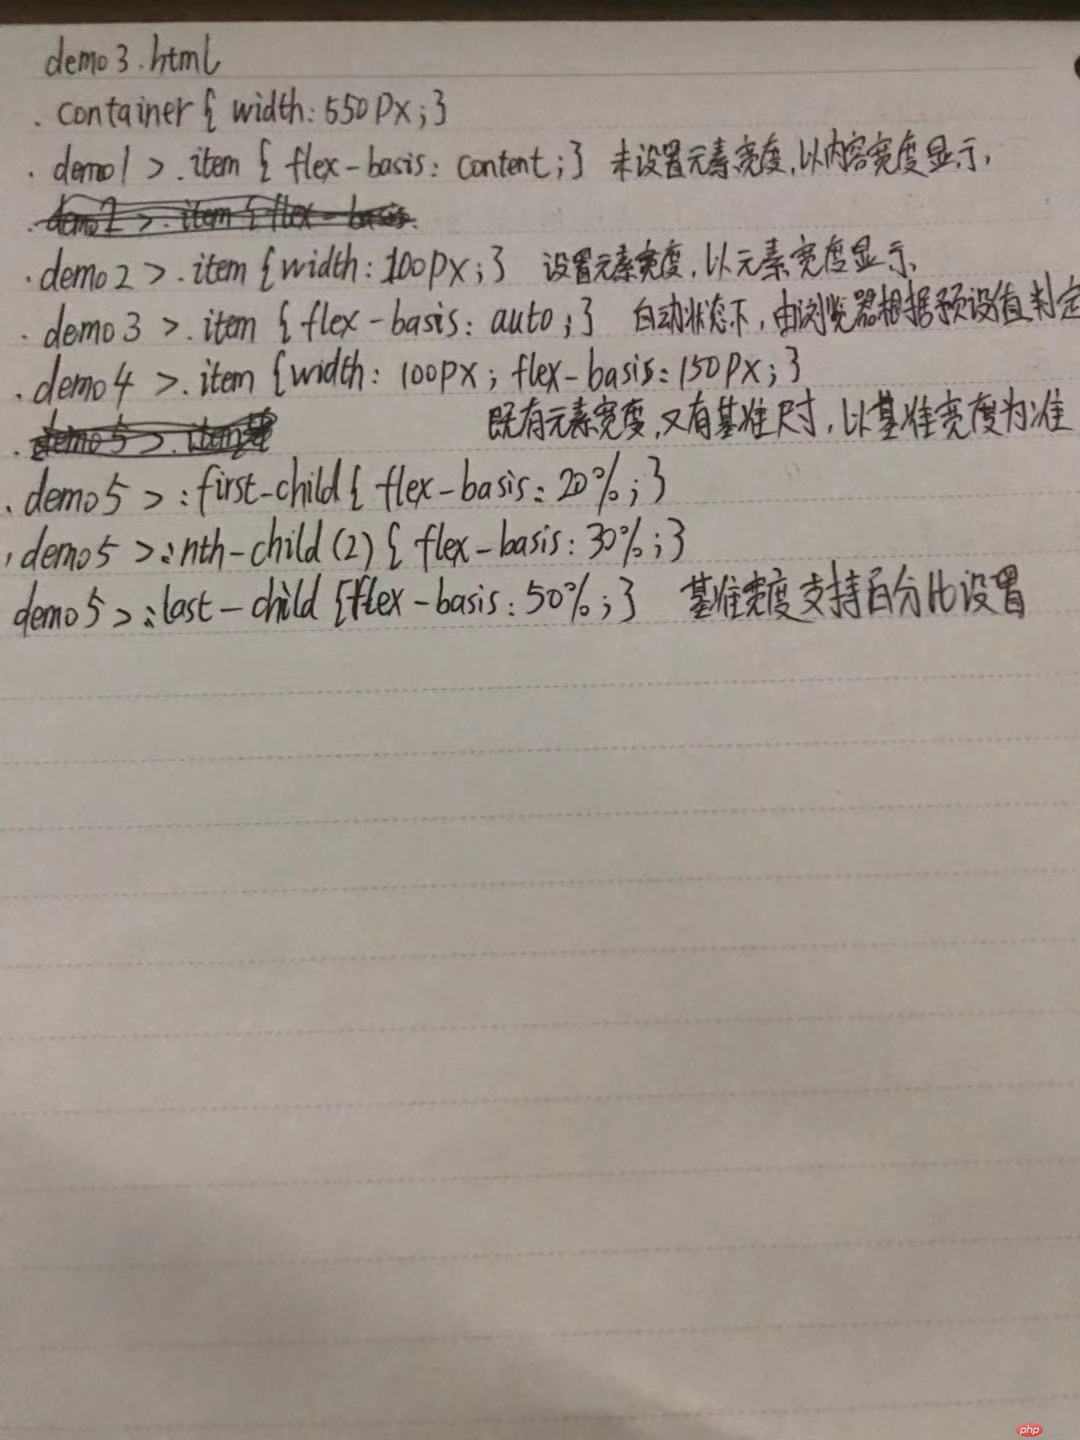 demo3.html
.container { width: 550px; }
.demo1 > .item { flex-basis: content; } 未设置元素宽度,以内容宽度显示,
.demo2 > .item { flex-basis
.demo2 > .item {width: 100px; } 设置元素宽度,以元素宽度显示、
.demo3 > .item { flex-basis: auto; } 自动状态下,由浏览器根据预设值判定
.demo4 > .item {width: 100px; flex-basis: 150px; }
.demo5 > .item{ 既有元素宽度,又有基准尺寸,以基准宽度为准
.demo5 > :first-child { flex-basis: 20%; }
.demo5 > :nth-child(2) { flex-basis: 30%; }
demo5 > :last-child {flex-basis: 50%; } 基准宽度支持百分比设置
php